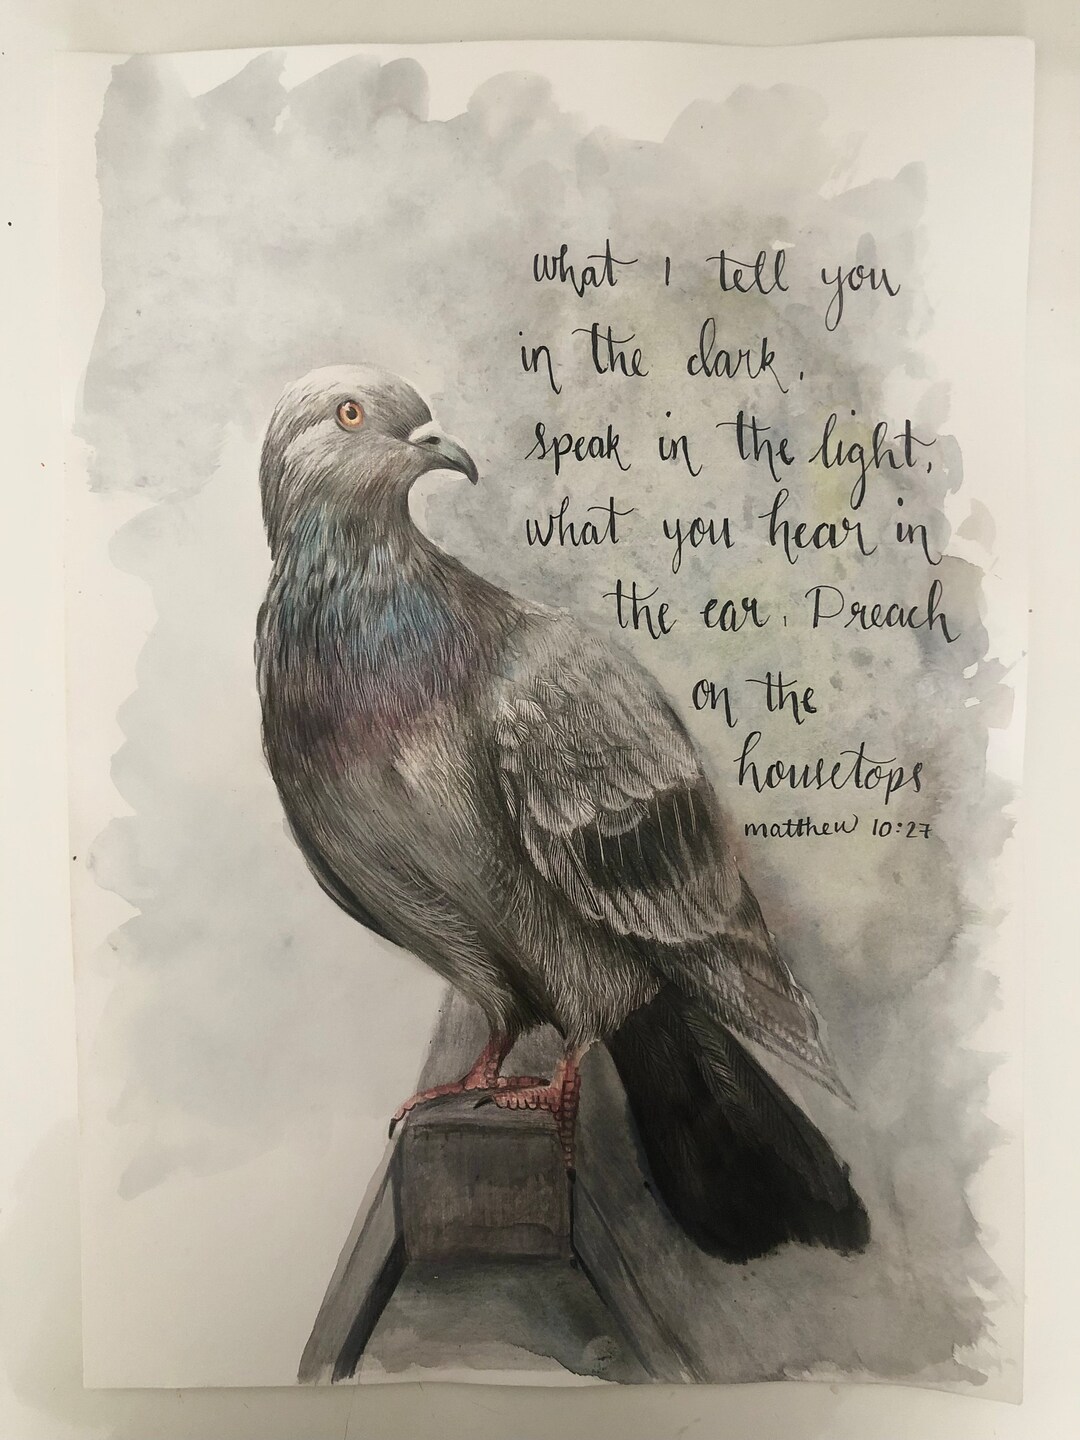 what I tell you
in the dark,
speak in the light,
what you hear in
the ear, Preach
on the
housetops
matthew 10:27